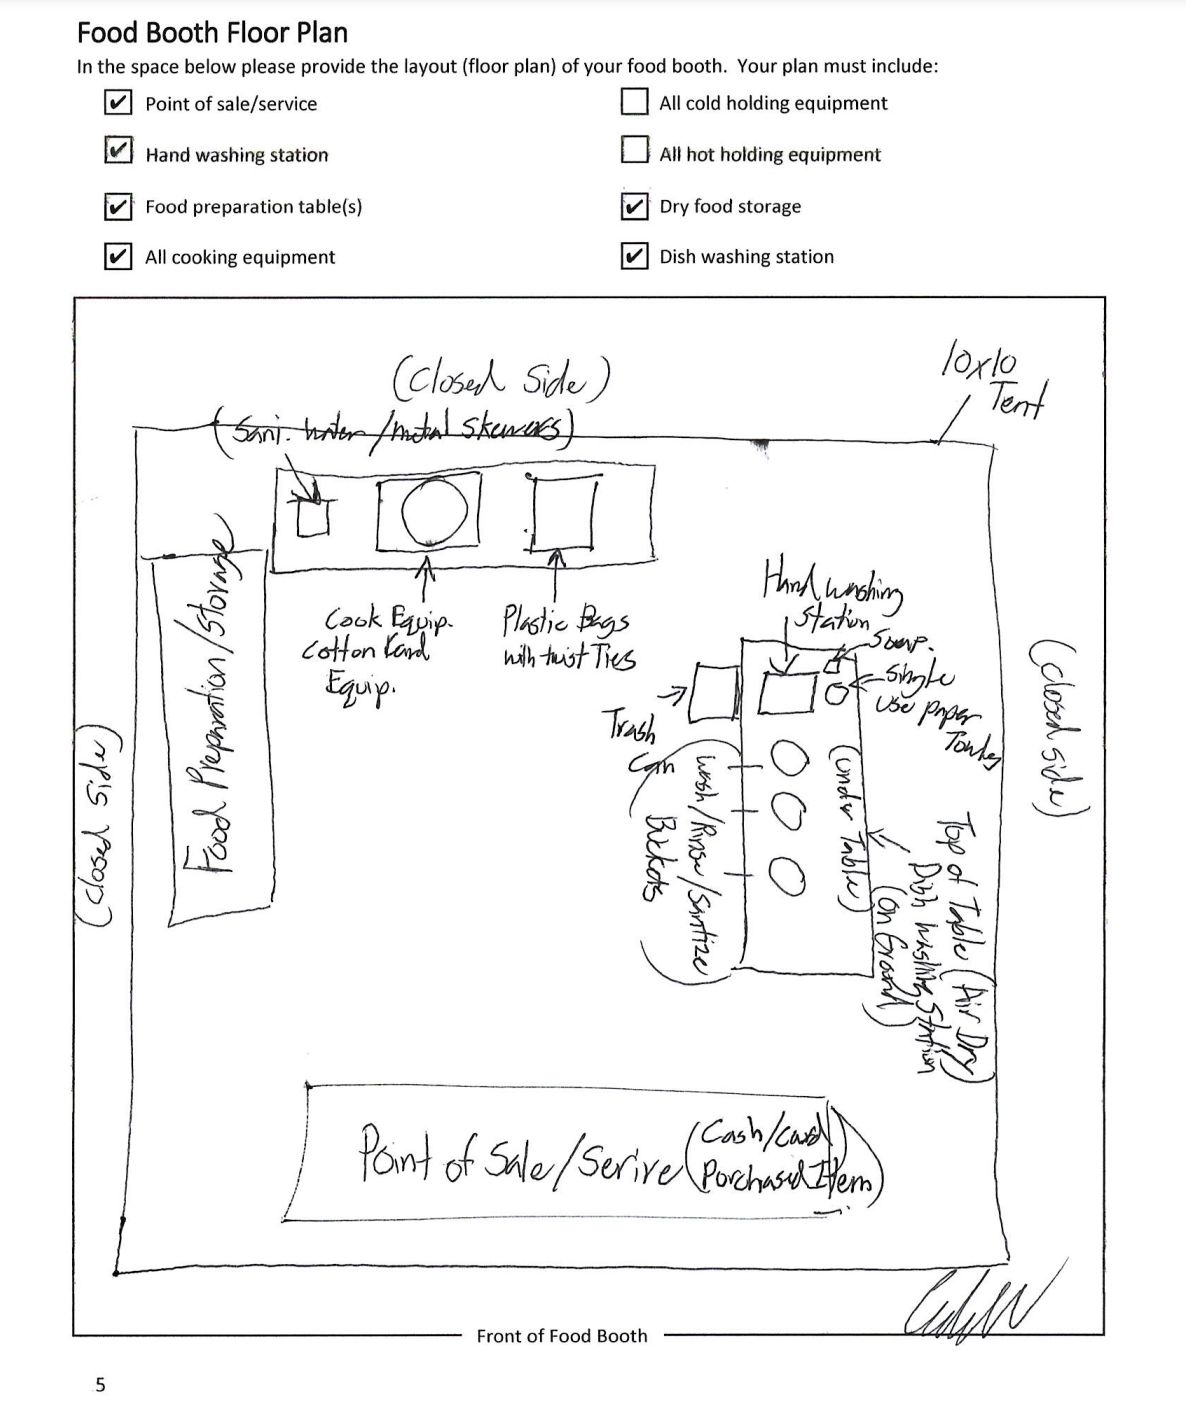 Food Booth Floor Plan
In the space below please provide the layout (floor plan) of your food booth. Your plan must include:
Point of sale/service
All cold holding equipment
Hand washing station
All hot holding equipment
Food preparation table(s)
Dry food storage
All cooking equipment
Dish washing station
(Closed Side)
10x10
Tent
(Sani. water/metal skewers)
Cook Equip.
Cotton Kand
Equip.
Plastic Bags
with twist Ties
Hand washing
Station
Soap.
Single
use paper
Towles
Trash
Can
Food Preparation/Storage
(Closed Side)
(Closed side)
Wash/Rinse/Sanitize
Buckets
(under Table)
Top of Table (Air Dry)
Dish washing Station
(on Ground)
Point of Sale/Serive
(Cash/Card)
Porchased Item)
Front of Food Booth
5